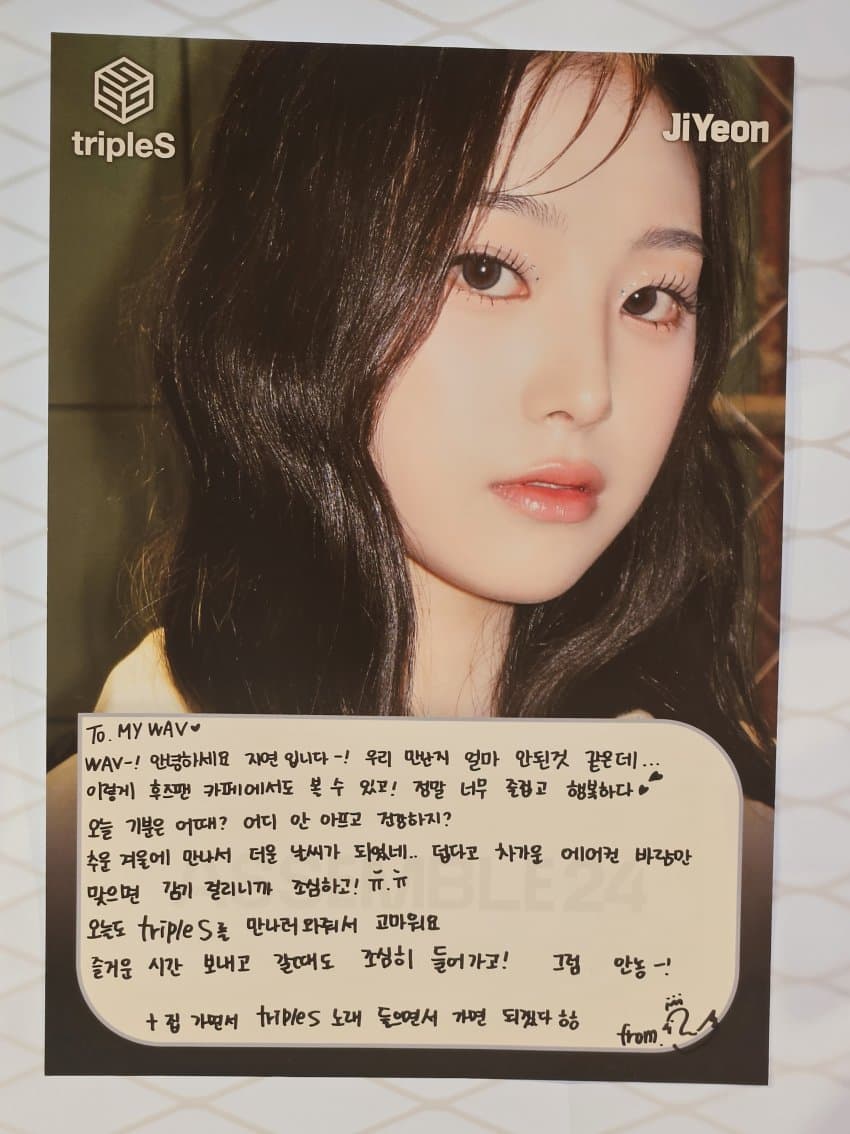 tripleS
JiYeon
To. MY WAV♥
WAV-! 안녕하세요 지연입니다-! 우리 만난지 얼마 안된것 같은데...
이렇게 후즈팬 카페에서도 볼 수 있고! 정말 너무 즐겁고 행복하다♥
오늘 기분은 어때? 어디 안 아프고 건강하지?
추운 겨울에 만나서 더운 날씨가 되였네.. 덥다고 차가운 에어컨 바람만
맞으면 감기 걸리니까 조심하고! ㅠ.ㅠ
ASSEMBLE24
오늘도 tripleS를 만나러와줘서 고마워요
즐거운 시간 보내고 갈때도 조심히 들어가고! 그럼 안농-!
+ 집 가면서 tripleS 노래 들으면서 가면 되겠다 ㅎㅎ
from.